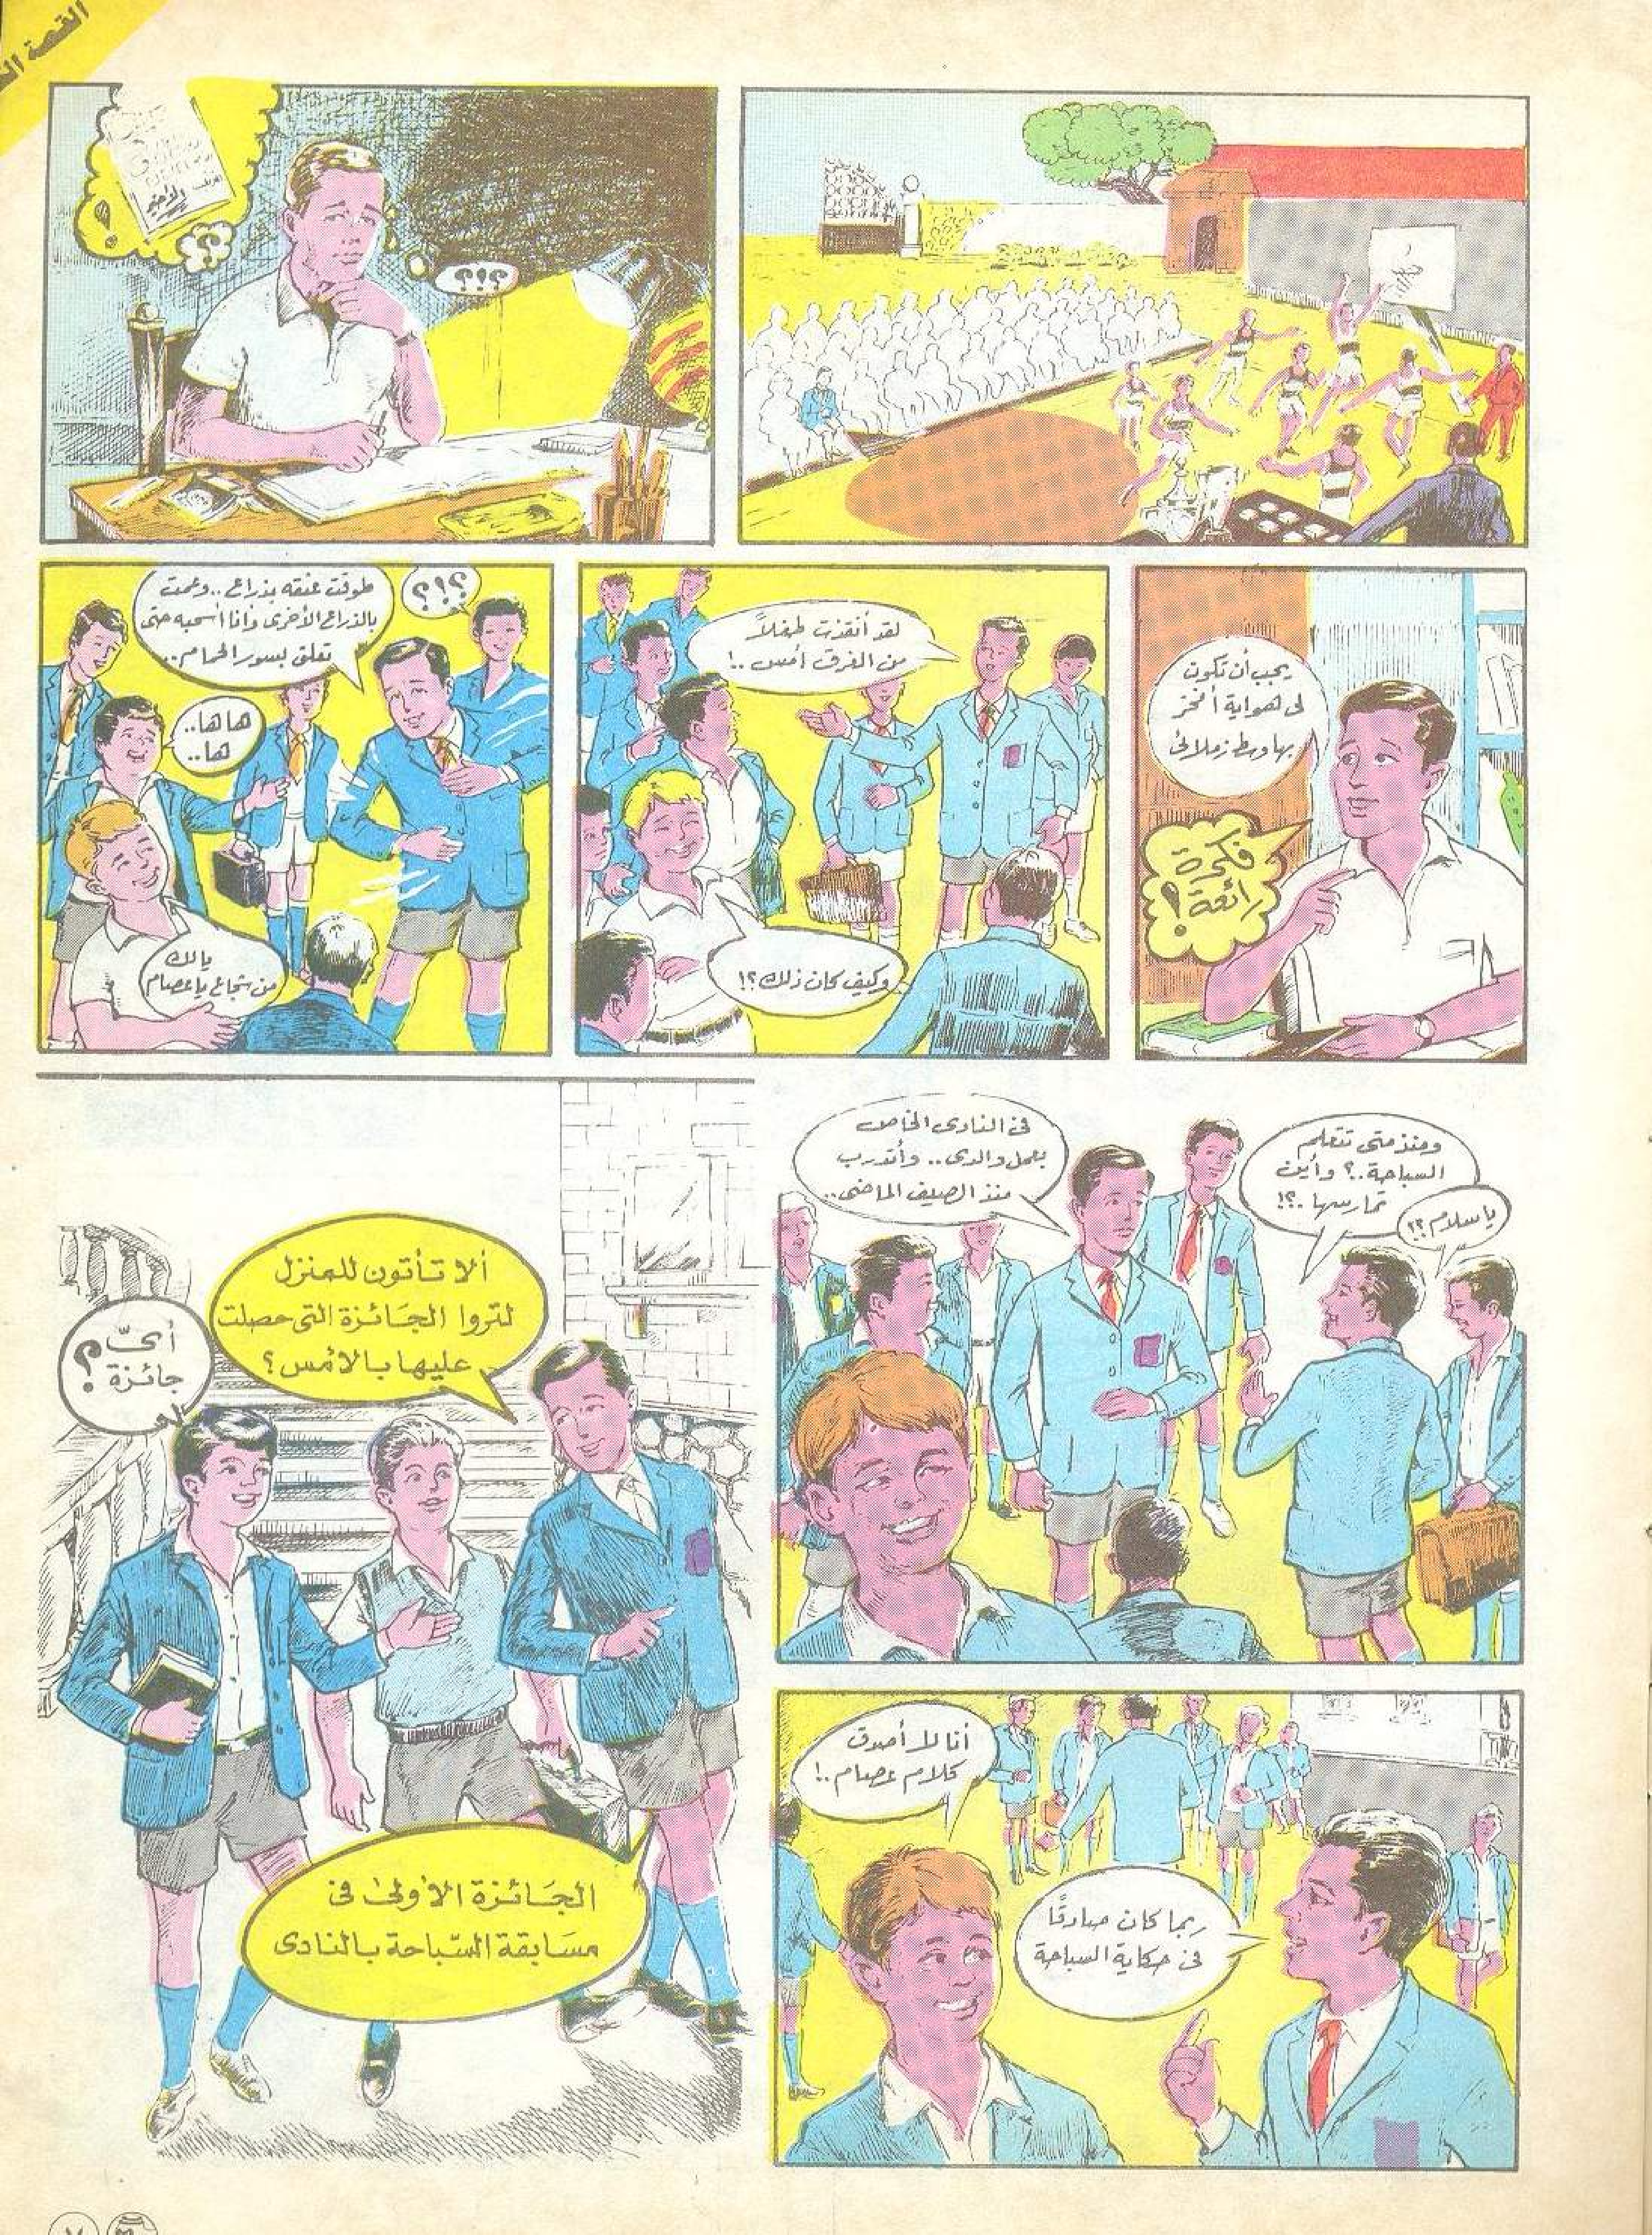 القصة
؟!؟
؟
!
يجب أن تكون
لى هواية أفخر
بها وسط زملائى
فكرة
رائعة!
لقد أنقذت طفلاً
من الغرق أمس ..!
وكيف كان ذلك؟!
طوقت عنقه بذراع .. وعمت
بالذراع الأخرى وأنا أسحبه حتى
تعلق بسور الحمام ..
؟!؟
ها ها ..
ها ..
يا لك
من شجاع يا عصام
ومنذ متى تتعلم
السباحة ..؟ وأين
تمارسها ..؟!
يا سلام؟!
فى النادى الخاص
بعمل والدى .. وأتدرب
منذ الصيف الماضى ..
أنا لا أصدق
كلام عصام ..!
ربما كان صادقًا
فى حكاية السباحة
ألا تأتون للمنزل
لتروا الجَائزة التى حصلت
عليها بالأمس؟
أىّ
جائزة؟
الجَائزة الأولى فى
مسَابقة السّباحة بالنادى
٧